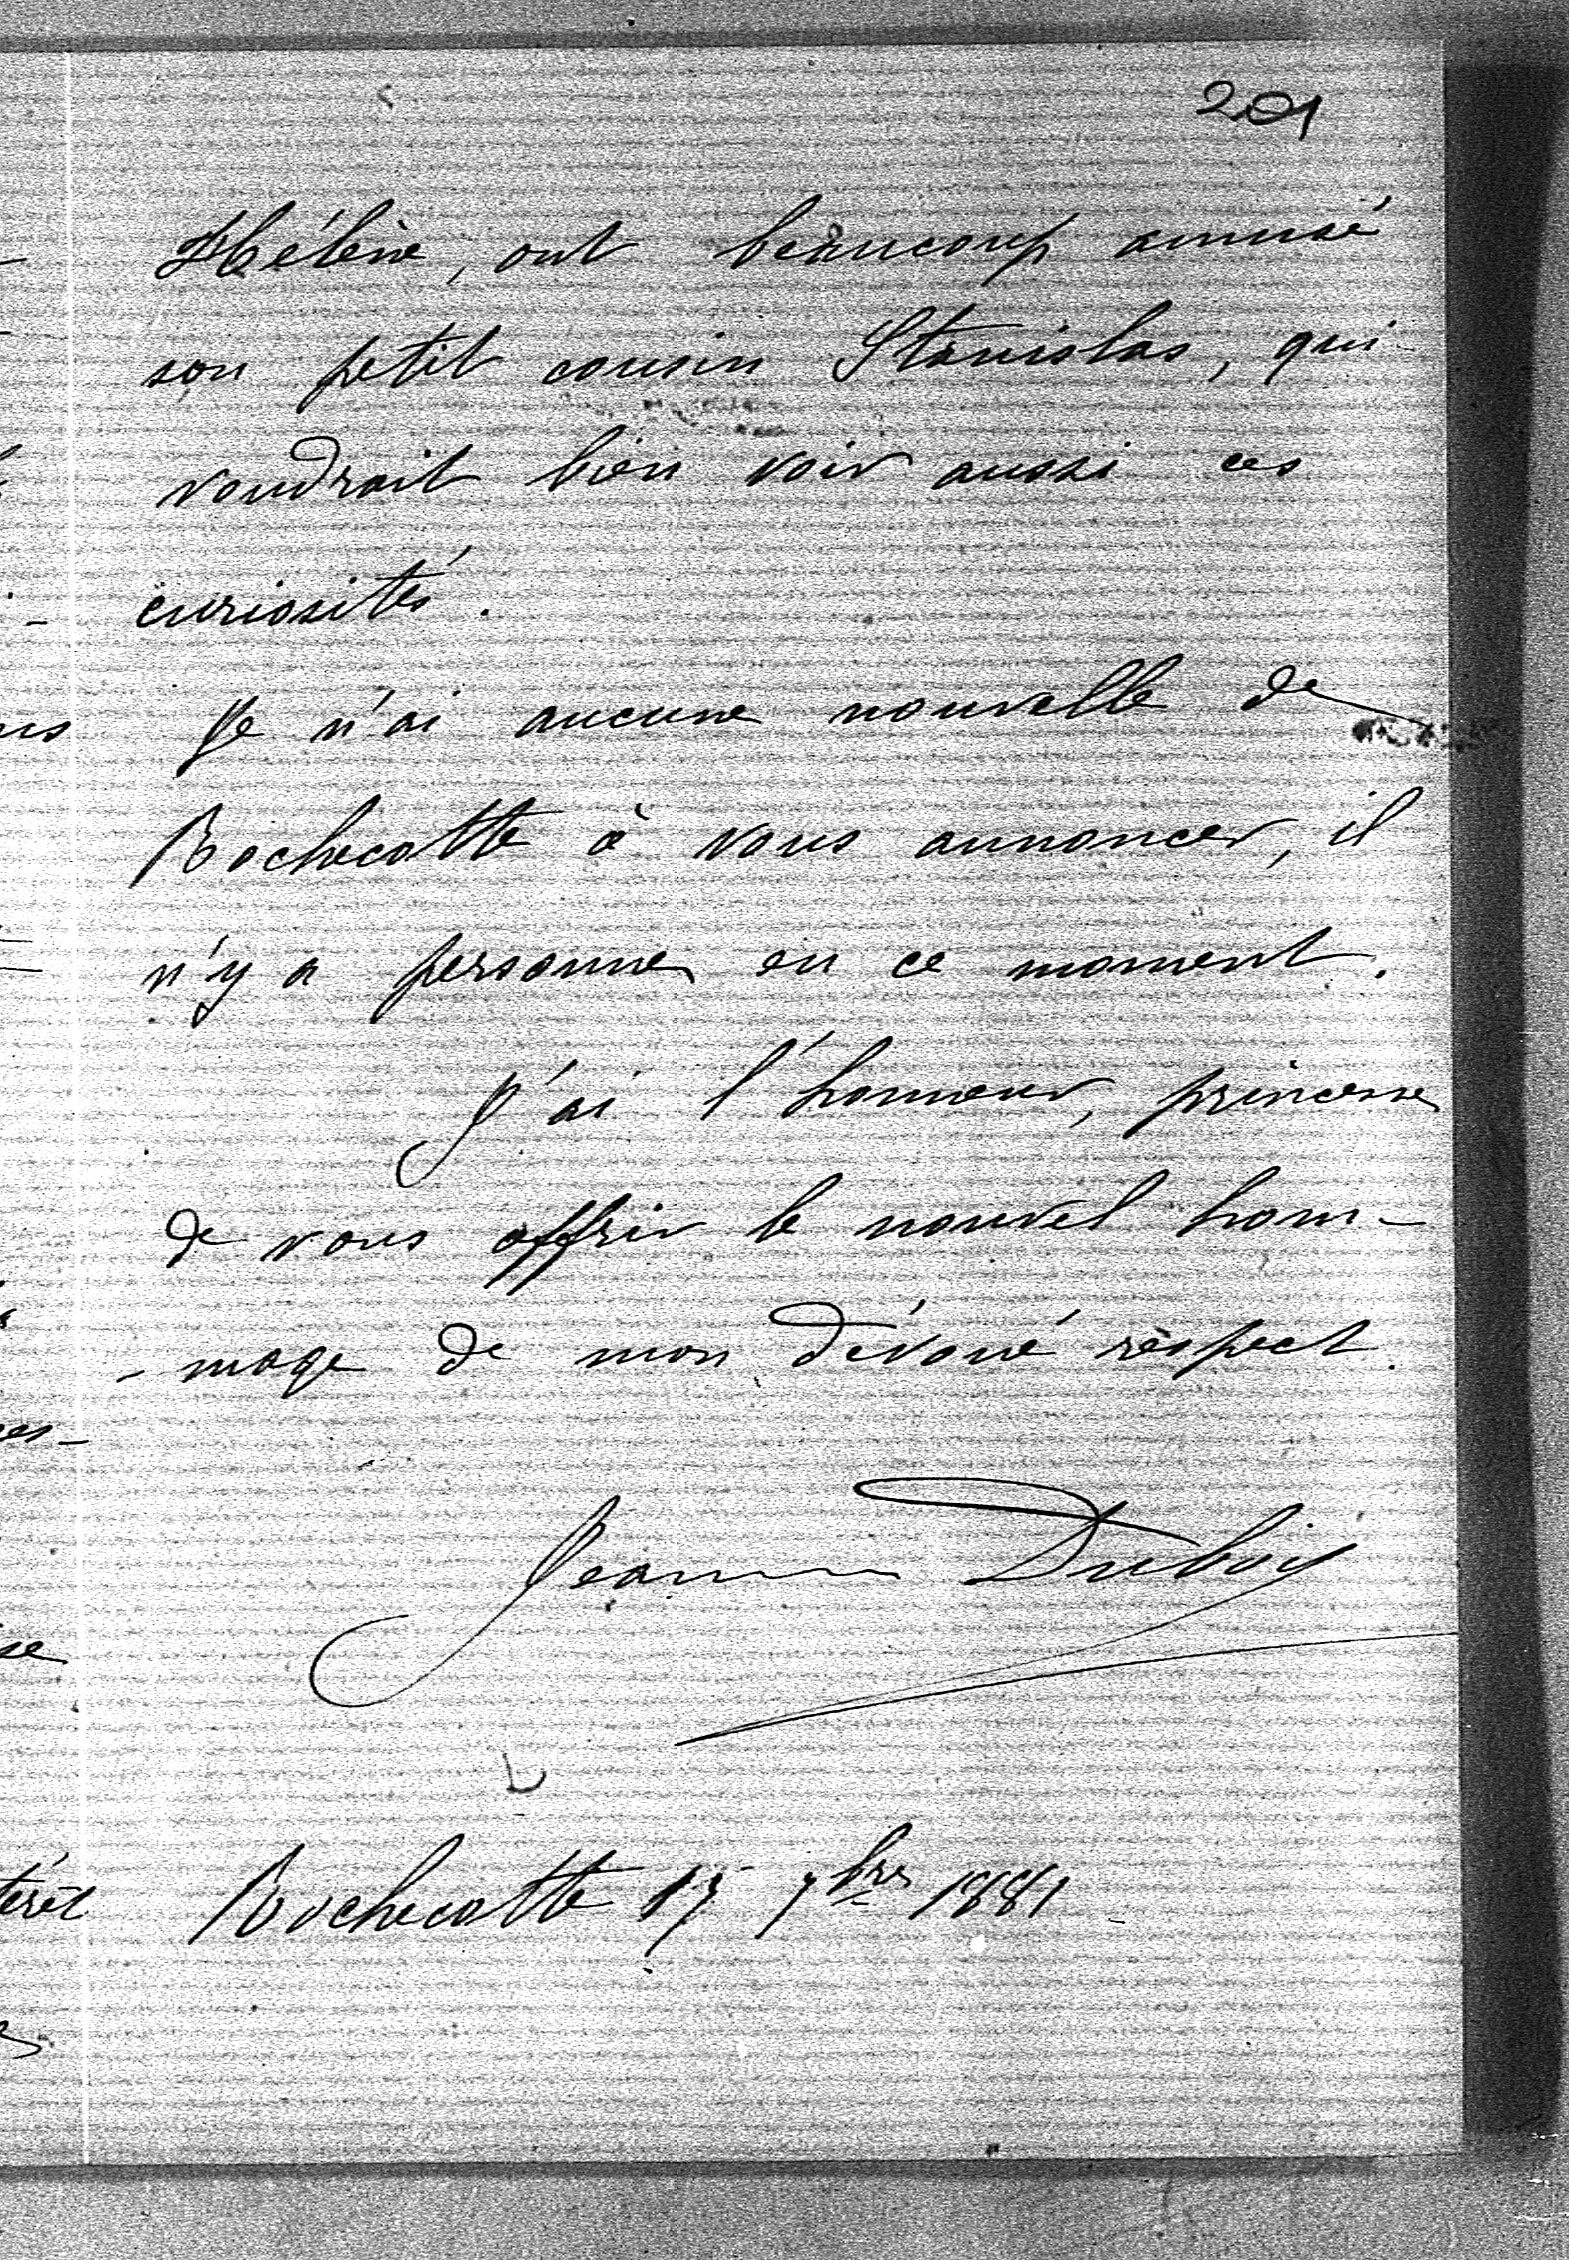 201
Hélène, ont beaucoup amusé
son petit cousin Stanislas, qui
voudrait bien voir aussi ces
curiosités.
Je n'ai aucune nouvelle de
Rochecotte à vous annoncer, il
n'y a personne en ce moment.
J'ai l'honneur, princesse
de vous offrir le nouvel hom-
-mage de mon dévoué respect.
Jeanne Dubois
Rochecotte 15 7bre 1881